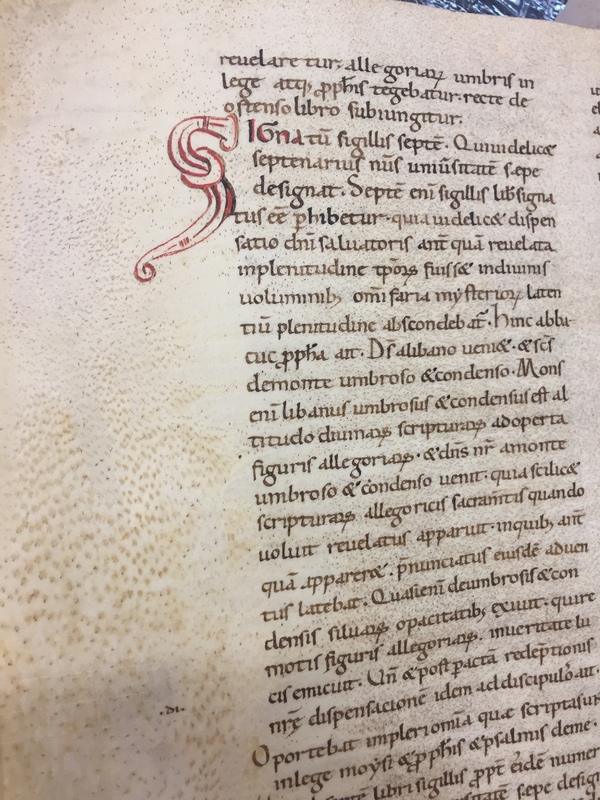 reuelaretur. allegoriaꝝ umbris in
lege atq; ꝓph̄is tegebatur. recte de
ostenso libro subiungitur.
SIGnatū sigillis septē. Quiuidelic&
septenarius nūs uniūsitatē sępe
designat. Septē eni sigillis lib̄ signa
tus eē ꝑhibetur. quia uidelic& dispen
satio dn̄i saluatoris antequā reuelata
inplenitudine tp̄oꝝ fuiss& indiuinis
uoluminib; omifaria mysterioꝝ laten
tiū plenitudine abscondebat᷑. hinc abba
cuc ꝓph̄a ait. D̄s alibano ueni&. & sc̄s
demonte umbroso & condenso. Mons
eni libanus umbrosus & condensus est al
titudo diuinaꝝ scripturaꝝ adoperta
figuris allegoriaꝝ. & dn̄s nr̄ amonte
umbroso & condenso uenit. quia scilic&
scripturaꝝ allegoricis sacram̄tis quando
uoluit reuelatus apparuit. inquib; ant̄
quā apparer&. p̄nunciatus eiusdē aduen
tus latebat. Quasi eni deumbrosis & con
densis siluaꝝ opacitatib; exiuit. quire
motis figuris allegoriaꝝ. inueritate lu
cis emicuit. Un̄ & post ꝑactā redēptionis
nrę dispensacionē idem addiscipulos ait.
.di.
Oportebat impleri om̄ia quae scripta sunt
inlege moysi & ꝓph̄is & psalmis deme.
libri sigillis ꝓpt̄ eidē numer
sępe desig